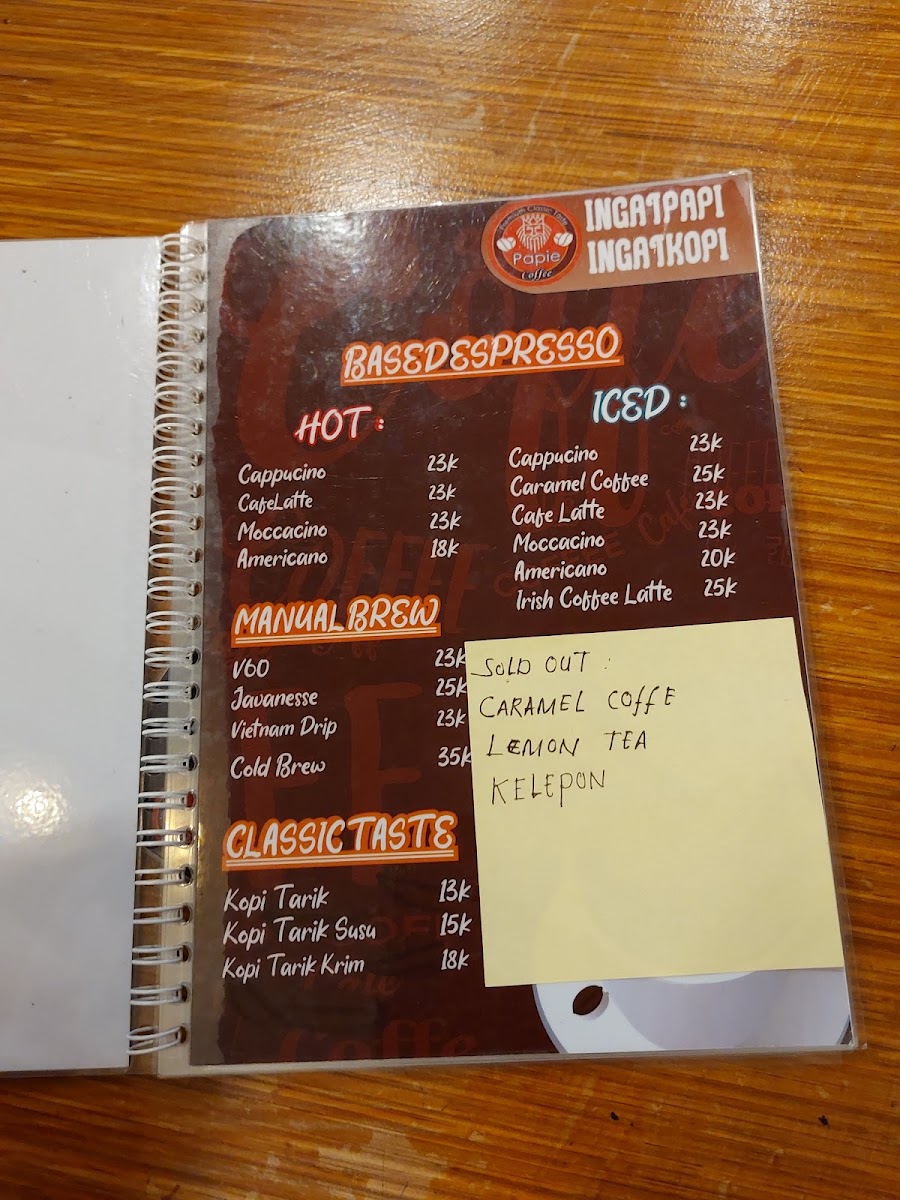 Premium Classic Taste
Papie
Coffee
INGATPAPI
INGATKOPI
BASED ESPRESSO
HOT :
Cappucino 23k
CafeLatte 23k
Moccacino 23k
Americano 18k
ICED :
Cappucino 23k
Caramel Coffee 25k
Cafe Latte 23k
Moccacino 23k
Americano 20k
Irish Coffee Latte 25k
MANUAL BREW
V60 23k
Javanesse 25k
Vietnam Drip 23k
Cold Brew 35k
CLASSIC TASTE
Kopi Tarik 13k
Kopi Tarik Susu 15k
Kopi Tarik Krim 18k
SOLD OUT :
CARAMEL COFFE
LEMON TEA
KELEPON